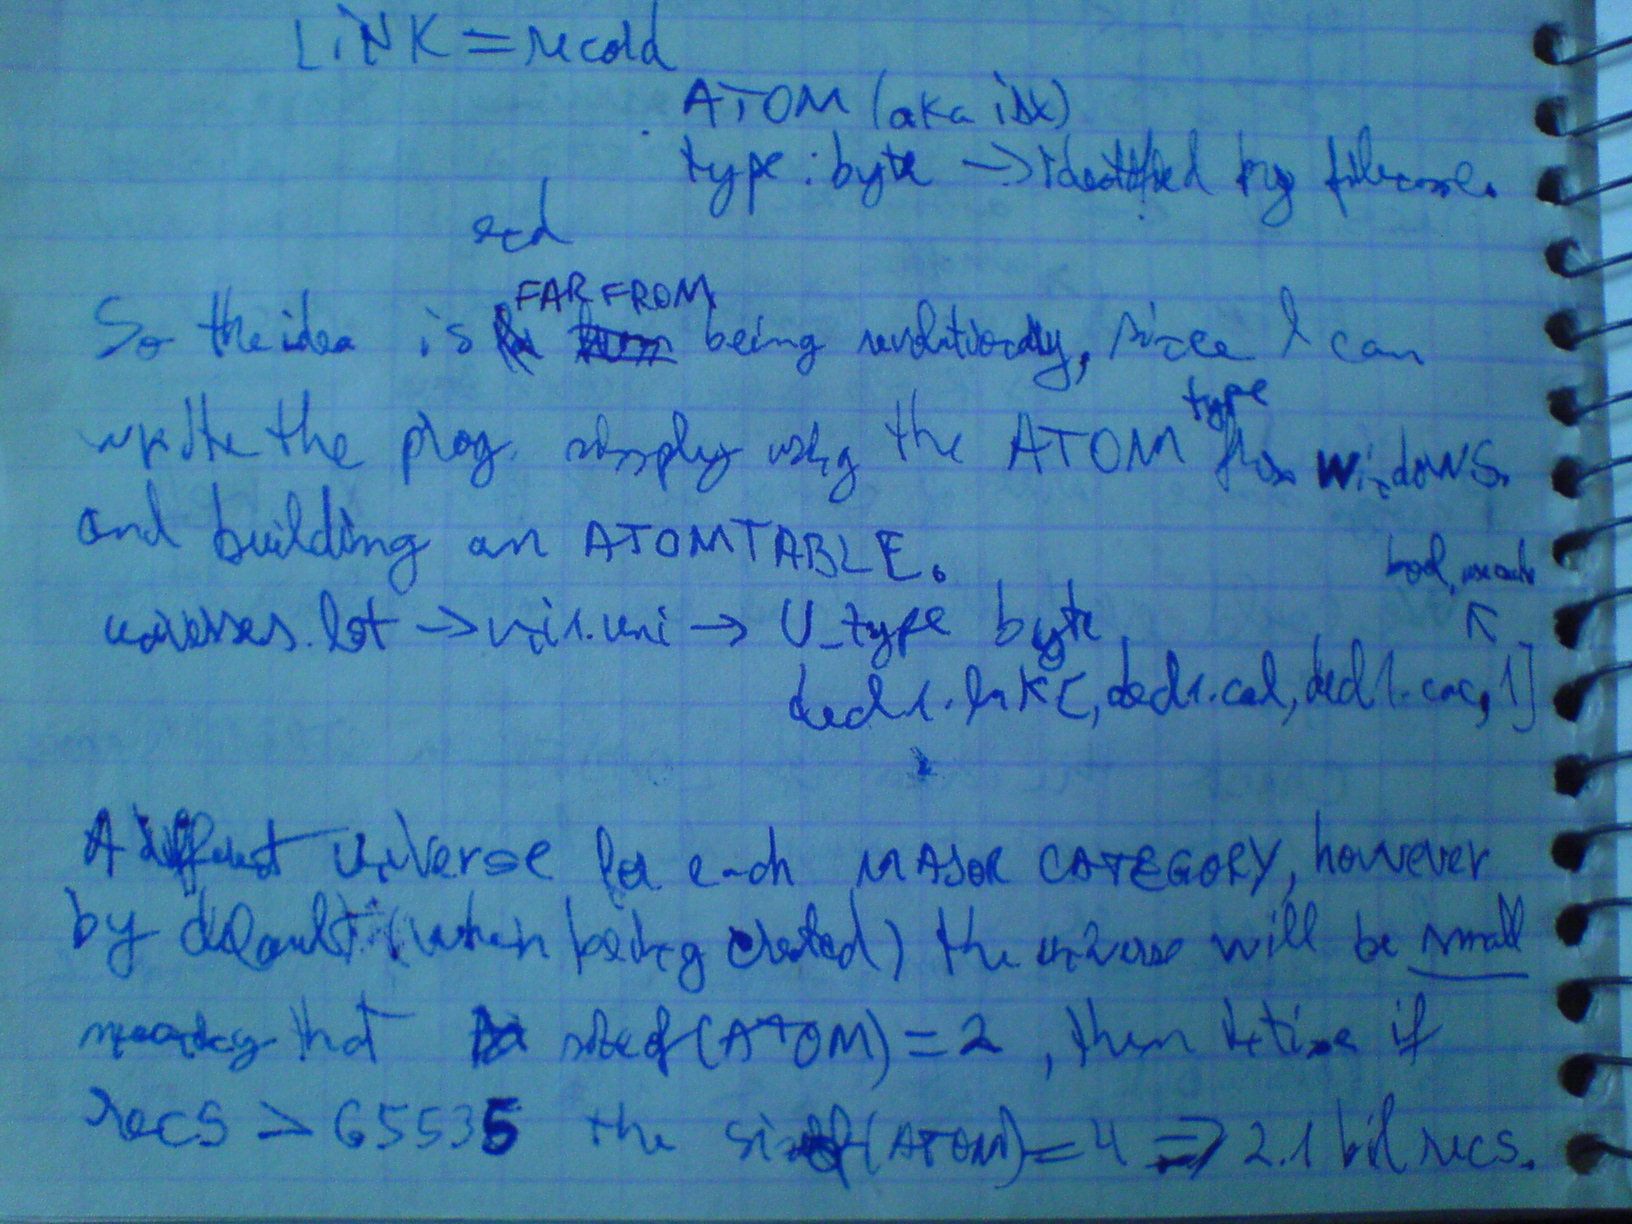 LiNK = record
ATOM (aka idx)
type : byte → identified by filename.
end
So the idea is FAR FROM being revolutionary, since I can
write the prog. simply using the ATOM type from windows.
and building an ATOMTABLE.
bool, use cache
universes.lot → uni1.uni → U_type byte
ded1.lnk [, ded1.cal, ded1.cac, 1]
A different universe for each MAJOR CATEGORY, however
by default (when being created) the universe will be small
meaning that sizeof(ATOM) = 2, then in time if
recs > 65535 the sizeof(ATOM) = 4 => 2.1 bil recs.